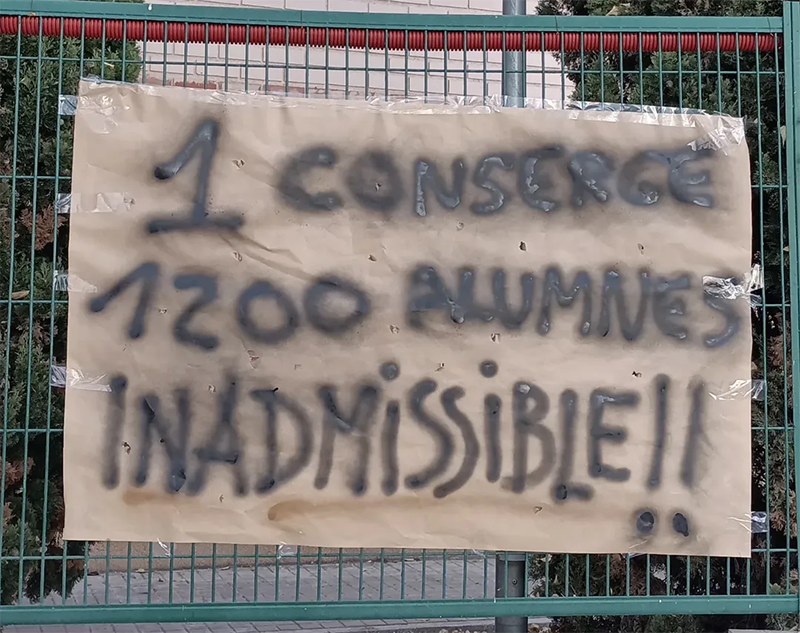 1 CONSERGE
1200 ALUMNES
INADMiSSiBLE!!